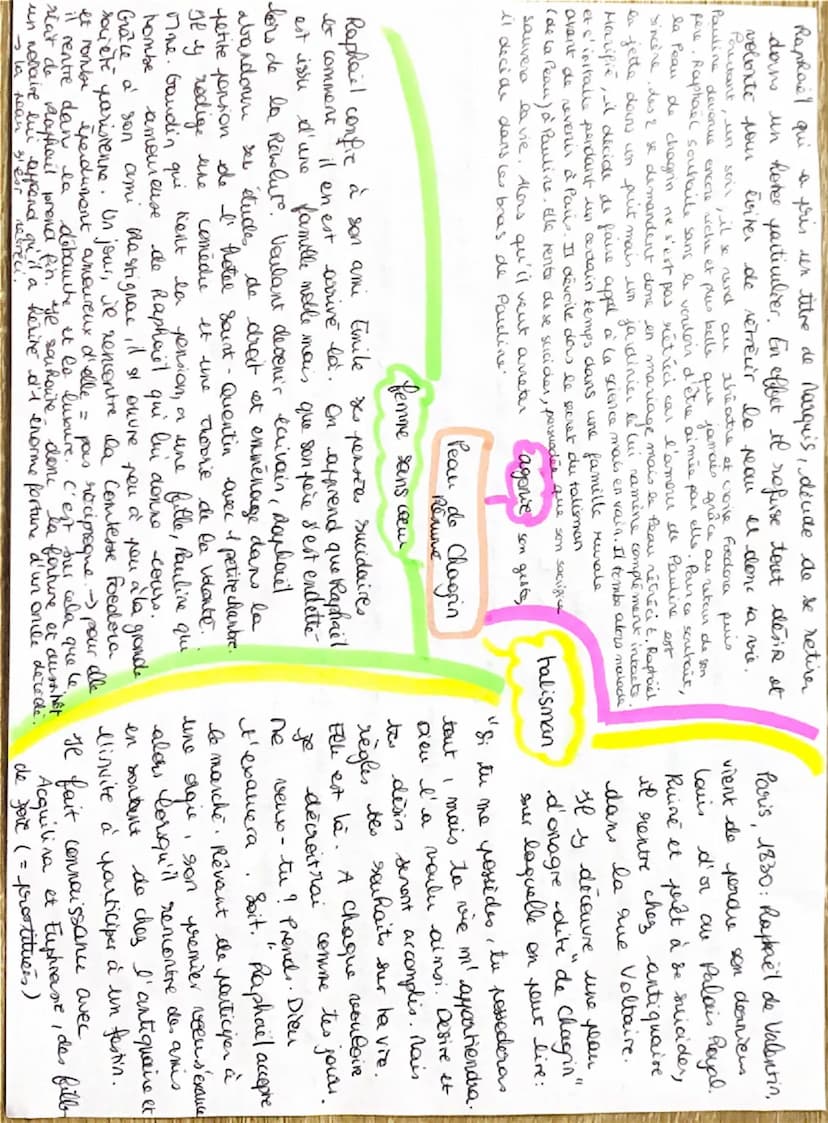 Peau de Chagrin
Résumé
talisman
Paris, 1830: Raphaël de Valentin,
vient de perdre son derniers
Louis d'or au Palais Royal.
Ruiné et prêt à se suicider,
il rentre chez antiquaire
dans la rue Voltaire.
Il y découvre une peau
d'onagre dite "de Chagrin"
sur laquelle on peut lire:
"Si tu me possèdes, tu possèderas
tout, mais ta vie m'appartiendra.
Dieu l'a voulu ainsi. Désire et
tes désirs seront accomplis. Mais
règles tes souhaits sur ta vie.
Elle est là. A chaque vouloir
je décroîtrai comme tes jours.
Me veux-tu? Prends. Dieu
t'exaucera. Soit." Raphaël accepte
le marché. Rêvant de participer à
une orgie, son premier voeu s'exauce
alors lorsqu'il rencontre des amis
en sortant de chez l'antiquaire et
l'invite à participer à un festin.
Il fait connaissance avec
Acquilina et Euphrasie, des filles
de joie (= prostituées)
femme sans cœur
Raphaël confie à son ami Emile ses pensées suicidaires
et comment il en est arrivé là. On apprend que Raphaël
est issu d'une famille noble mais que son père s'est endetté
lors de la Révolut°. Voulant devenir écrivain, Raphaël
abandonne ses études de droit et emménage dans la
petite pension de l'hôtel Saint-Quentin avec 1 petite chambre.
Il y rédige une comédie et une théorie de la Volonté.
Mme. Gaudin qui tient la pension, a une fille, Pauline qui
tombe amoureuse de Raphaël qui lui donne cours.
Grâce à son ami Rastignac, il s'ouvre peu à peu à la grande
société parisienne. Un jour, il rencontre la Comtesse Foedora
et tombe éperdument amoureux d'elle = pas réciproque. → pour elle
il rentre dans la débauche et la luxure. C'est sur cela que le
récit de Raphaël prend fin. Il souhaite donc la fortune et aussitôt
un notaire lui apprend qu'il a hérité d'1 énorme fortune d'un oncle décédé.
→ la peau s'est rétréci.
agonie
Raphaël qui a pris un titre de Marquis, décide de se retirer
dans un hôtel particulier. En effet il refuse tout désir et
volonté pour éviter de rétrécir la peau et donc sa vie.
Pourtant, un soir, il se rend au théâtre et croise Foedora puis
Pauline devenue encore riche et plus belle que jamais grâce au retour de son
père. Raphaël souhaite sans le vouloir d'être aimée par elle. Pour ce souhait,
la Peau de chagrin ne s'est pas rétréci car l'amour de Pauline est
sincère. Les 2 se demandent donc en mariage mais la Peau rétrécit. Raphaël
la jette dans un puit mais un jardinier le lui ramène complément intacte.
Horrifié, il décide de faire appel à la science mais en vain. Il tombe alors malade
et s'installe pendant un certain temps dans une famille rurale
avant de revenir à Paris. Il dévoile dans le secret du talisman
(de la Peau) à Pauline. Elle tente de se suicider, persuadée que son sacrifice
sauvera la vie. Alors qu'il veut arrêter son geste,
il décide dans les bras de Pauline.